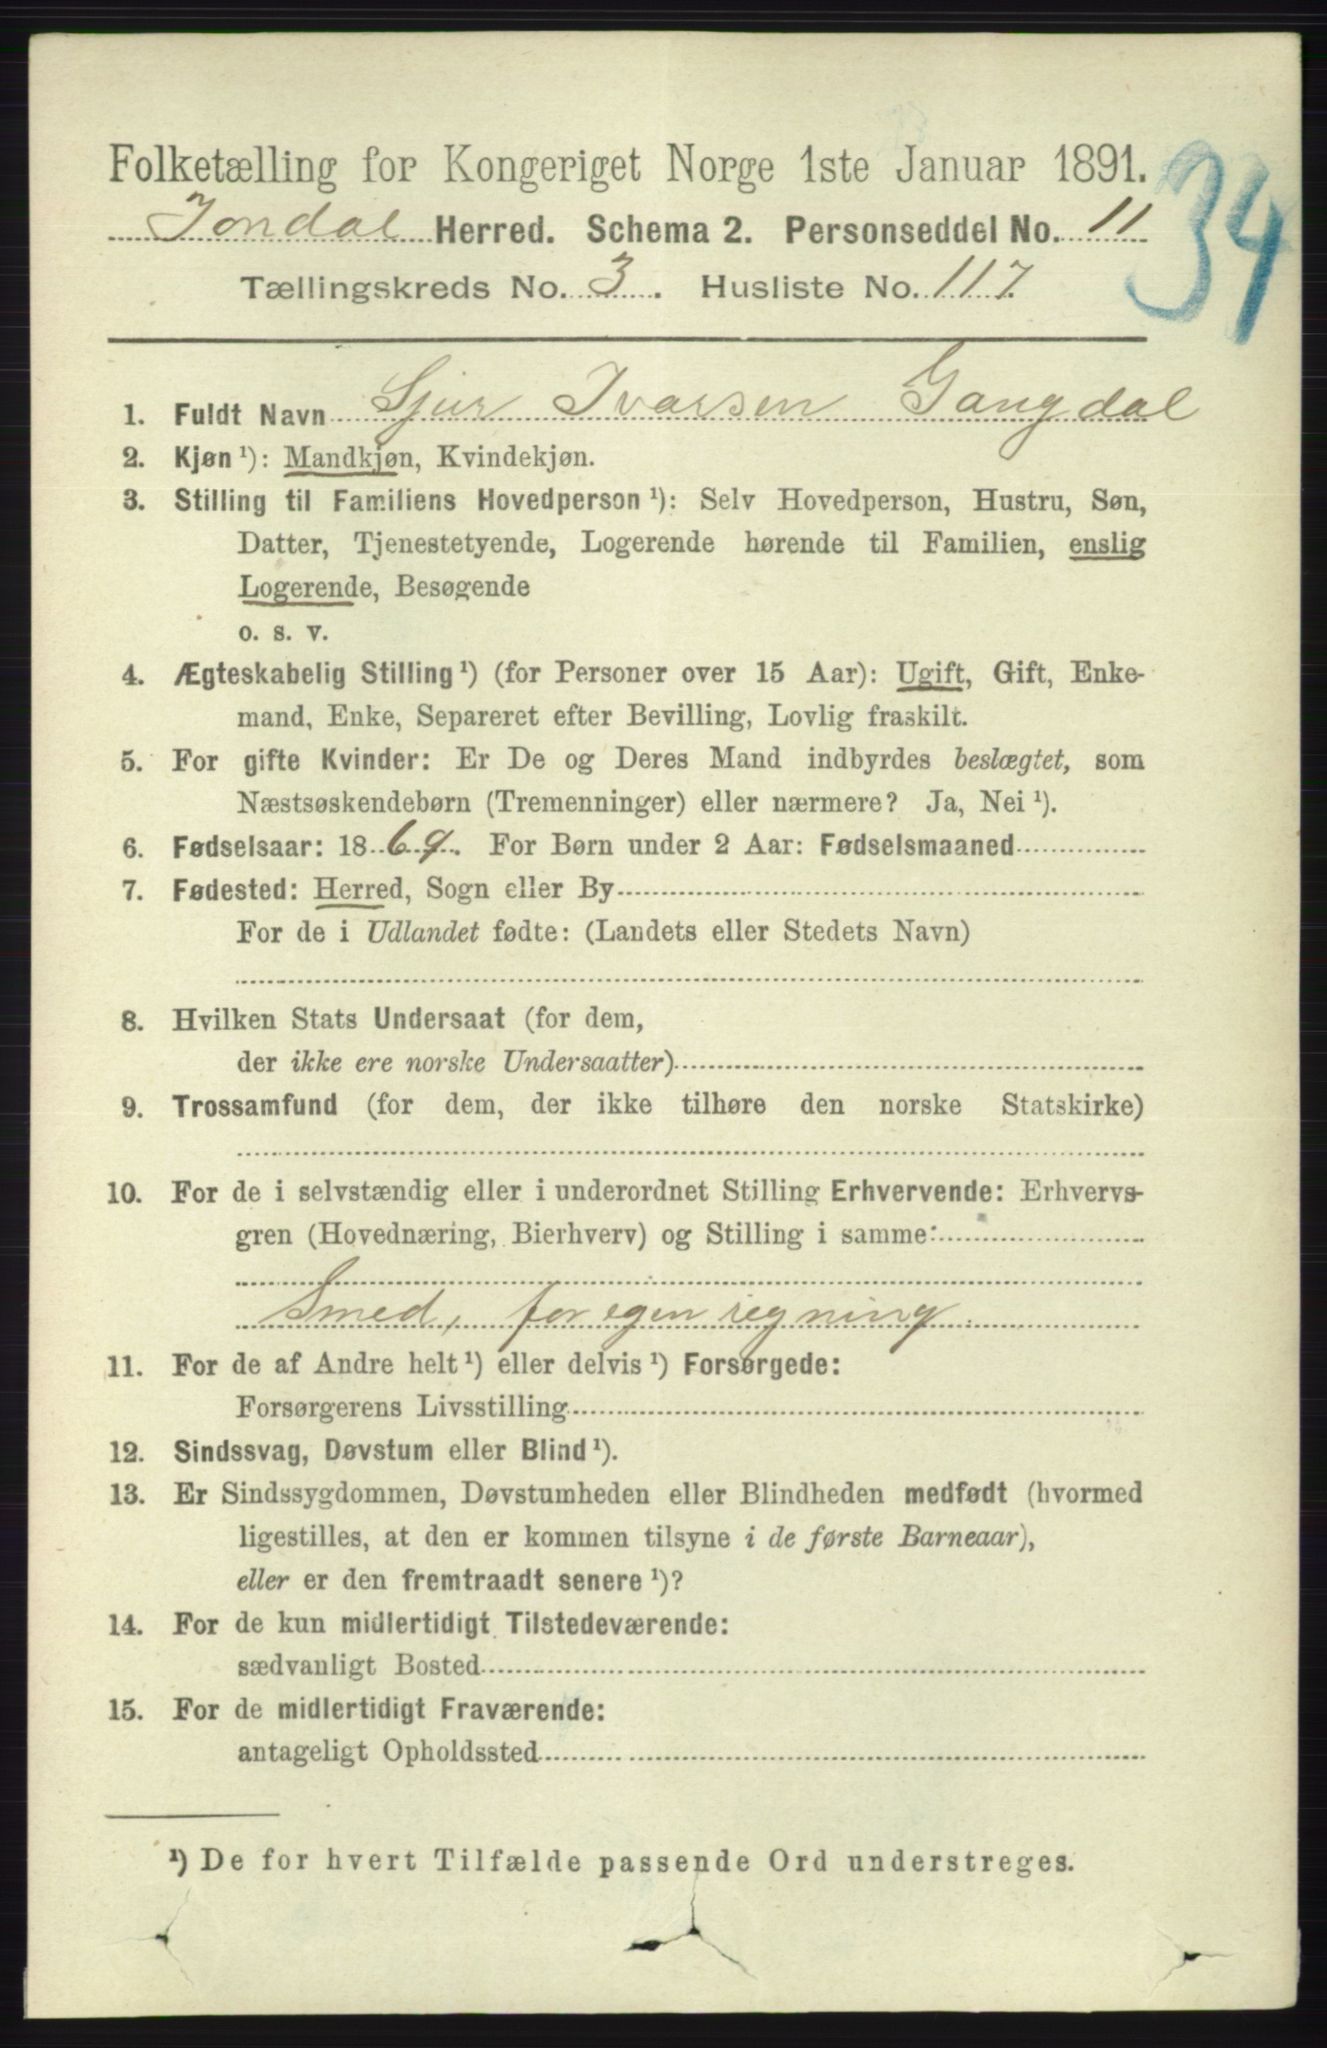 Folketælling for Kongeriget Norge 1ste Januar 1891.
34
Jondal Herred. Schema 2. Personseddel No. 11
Tællingskreds No. 3. Husliste No. 117.
1. Fuldt Navn Sjur Ivarsen Gangdal
2. Kjøn ¹): Mandkjøn, Kvindekjøn.
3. Stilling til Familiens Hovedperson ¹): Selv Hovedperson, Hustru, Søn,
Datter, Tjenestetyende, Logerende hørende til Familien, enslig
Logerende, Besøgende
o. s. v.
4. Ægteskabelig Stilling ¹) (for Personer over 15 Aar): Ugift, Gift, Enke-
mand, Enke, Separeret efter Bevilling, Lovlig fraskilt.
5. For gifte Kvinder: Er De og Deres Mand indbyrdes beslægtet, som
Næstsøskendebørn (Tremenninger) eller nærmere? Ja, Nei ¹).
6. Fødselsaar: 1869. For Børn under 2 Aar: Fødselsmaaned
7. Fødested: Herred, Sogn eller By
For de i Udlandet fødte: (Landets eller Stedets Navn)
8. Hvilken Stats Undersaat (for dem,
der ikke ere norske Undersaatter)
9. Trossamfund (for dem, der ikke tilhøre den norske Statskirke)
10. For de i selvstændig eller i underordnet Stilling Erhvervende: Erhvervs-
gren (Hovednæring, Bierhverv) og Stilling i samme:
Smed, for egen regning.
11. For de af Andre helt ¹) eller delvis ¹) Forsørgede:
Forsørgerens Livsstilling
12. Sindssvag, Døvstum eller Blind ¹).
13. Er Sindssygdommen, Døvstumheden eller Blindheden medfødt (hvormed
ligestilles, at den er kommen tilsyne i de første Barneaar),
eller er den fremtraadt senere ¹)?
14. For de kun midlertidigt Tilstedeværende:
sædvanligt Bosted
15. For de midlertidigt Fraværende:
antageligt Opholdssted
¹) De for hvert Tilfælde passende Ord understreges.